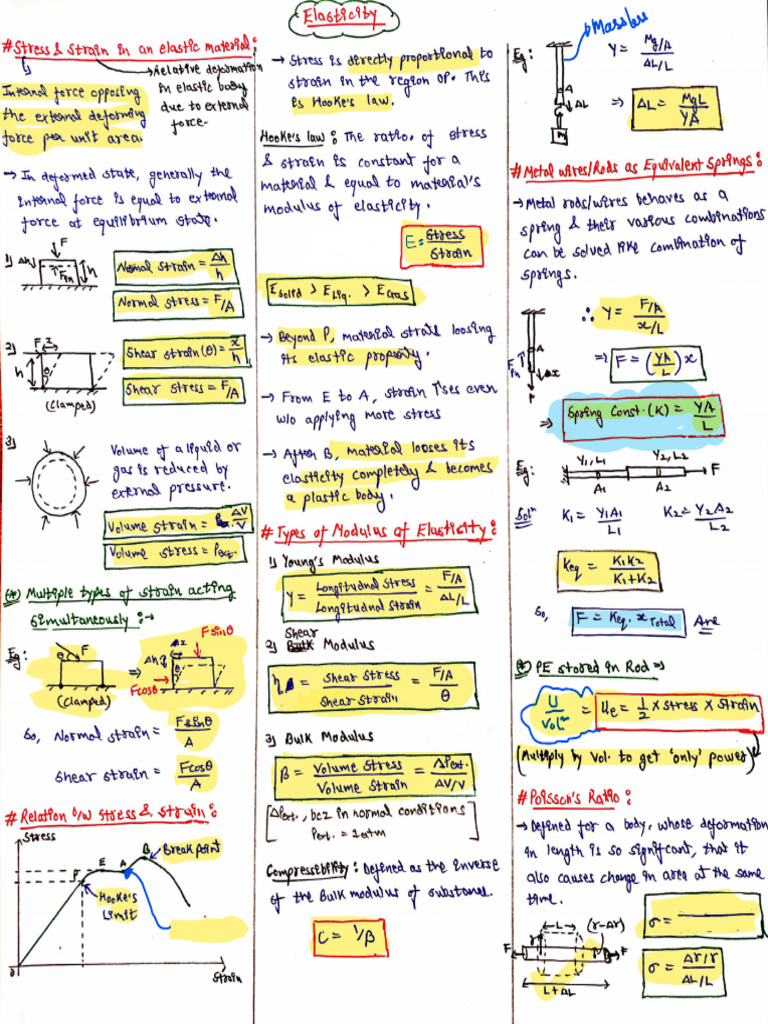 Elasticity
# Stress & Strain in an elastic material:
Internal force opposing
the external deforming
force per unit area.
Relative deformation
in elastic body
due to external
force.
→ In deformed state, generally the
internal force is equal to external
force at equilibrium state.
1) Δh F Fin h
Normal strain = Δh/h
Normal stress = F/A
2) F x h θ
(clamped)
Shear strain(θ) = x/h
Shear stress = F/A
3)
Volume of a liquid or
gas is reduced by
external pressure.
Volume strain = ΔV/V
Volume stress = Pext.
(*) Multiple types of strain acting
simultaneously :→
Eg: θ F
(clamped)
⇒ Δh Δx θ
Fsinθ
Fcosθ
So, Normal strain = Fsinθ/A
Shear strain = Fcosθ/A
# Relation b/w stress & strain :
Stress
P E A B
Break point
Hooke's
Limit
O
Strain
→ Stress is directly proportional to
strain in the region OP. This
is Hooke's law.
Hooke's law : The ratio of stress
& strain is constant for a
material & equal to material's
modulus of elasticity.
E = Stress/Strain
E Solid > E Liq. > E Gas
→ Beyond P, material strats loosing
its elastic property.
→ From E to A, strain ↑ses even
w/o applying more stress
→ After B, material looses its
elasticity completely & becomes
a plastic body.
# Types of Modulus of Elasticity :
1) Young's Modulus
Y = Longitudnal stress/Longitudnal strain = F/A/ΔL/L
Shear
2) Bulk Modulus
η = Shear stress/Shear strain = F/A/θ
3) Bulk Modulus
β = Volume stress/Volume strain = ΔPext./ΔV/V
[ΔPext., bcz in normal conditions
Pext. = 1atm]
Compressibility : Defined as the inverse
of the Bulk modulus of substance.
C = 1/β
Massless
Eg: A ΔL M
Y = Mg/A/ΔL/L
⇒ ΔL = MgL/YA
# Metal wires/Rods as Equivalent Springs :
→ Metal rods/wires behaves as a
spring & their various combinations
can be solved like combination of
springs.
A Fin Δx F
∴ Y = F/A/x/L
⇒ F = (YA/L) x
⇒ Spring Const. (K) = YA/L
Eg: Y1, L1 Y2, L2 F
A1 A2
Solⁿ K1 = Y1A1/L1 K2 = Y2A2/L2
Keq = K1K2/K1+K2
So, F = Keq. x Total Ans
(*) PE stored in Rod ⇒
U/Volᵐ = Ue = 1/2 × stress × strain
(Multiply by Vol. to get 'only' power)
# Poisson's Ratio :
→ Defined for a body, whose deformation
in length is so significant, that it
also causes change in area at the same
time.
L (r-Δr)
F r F
L+ΔL
σ =
σ = Δr/r/ΔL/L